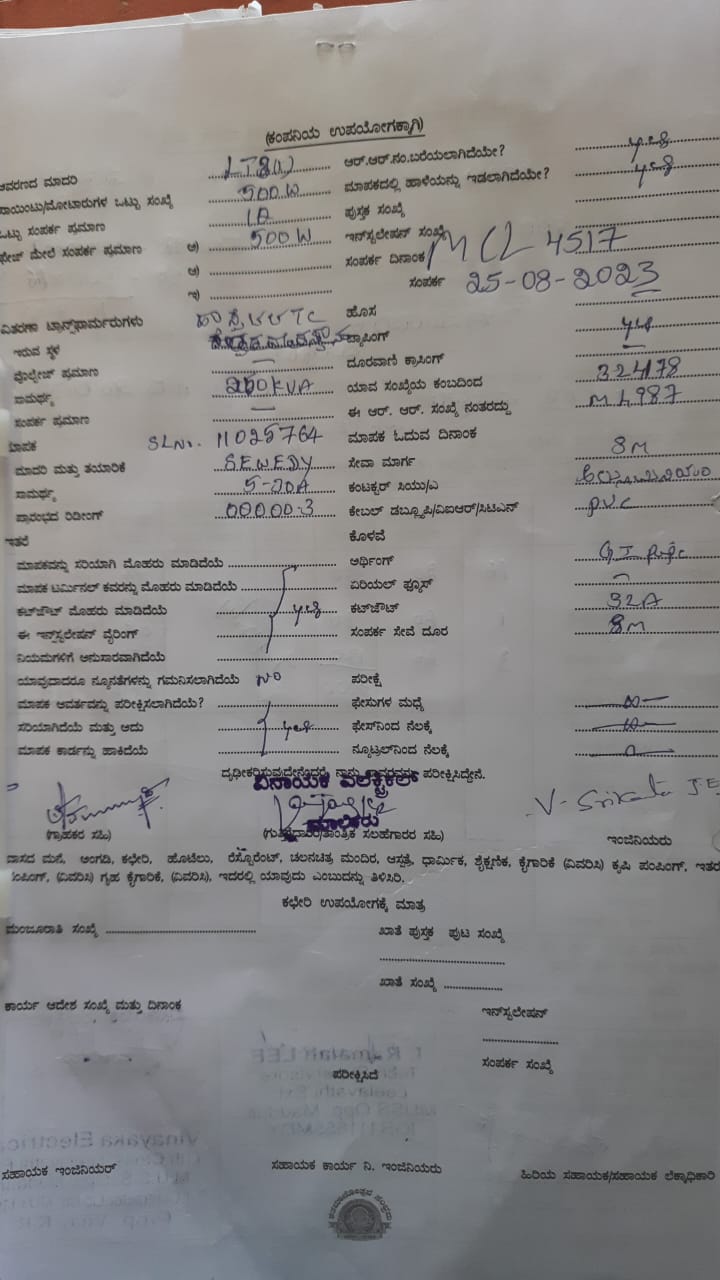 (ಕಂಪನಿಯ ಉಪಯೋಗಕ್ಕಾಗಿ)
ಆವರಣದ ಮಾದರಿ LT8(1) ಆರ್.ಆರ್.ನಂ.ಬರೆಯಲಾಗಿದೆಯೇ? yes
ಪಾಯಿಂಟು/ಮೋಟಾರುಗಳ ಒಟ್ಟು ಸಂಖ್ಯೆ 500W ಮಾಪಕದಲ್ಲಿ ಹಾಳೆಯನ್ನು ಇಡಲಾಗಿದೆಯೇ? yes
ಒಟ್ಟು ಸಂಪರ್ಕ ಪ್ರಮಾಣ 1A ಪುಸ್ತಕ ಸಂಖ್ಯೆ
ಫೇಜ್ ಮೇಲೆ ಸಂಪರ್ಕ ಪ್ರಮಾಣ ಅ) 500W ಇನ್‌ಸ್ಟಲೇಷನ್ ಸಂಖ್ಯೆ MCL 4517
ಆ) ಸಂಪರ್ಕ ದಿನಾಂಕ
ಇ) ಸಂಪರ್ಕ 25-08-2023
ವಿತರಣಾ ಟ್ರಾನ್ಸ್‌ಫಾರ್ಮರುಗಳು ಹೊಸ
ಇರುವ ಸ್ಥಳ ಟ್ಯಾಪಿಂಗ್ yes
ವೋಲ್ಟೇಜ್ ಪ್ರಮಾಣ — ದೂರವಾಣಿ ಕ್ರಾಸಿಂಗ್ —
ಸಾಮರ್ಥ್ಯ 250KVA ಯಾವ ಸಂಖ್ಯೆಯ ಕಂಬದಿಂದ 324178
ಸಂಪರ್ಕ ಪ್ರಮಾಣ — ಈ ಆರ್. ಆರ್. ಸಂಖ್ಯೆ ನಂತರದ್ದು ML987
ಮಾಪಕ SLNo. 11025764 ಮಾಪಕ ಓದುವ ದಿನಾಂಕ
ಮಾದರಿ ಮತ್ತು ತಯಾರಿಕೆ SEWEDY ಸೇವಾ ಮಾರ್ಗ 8M
ಸಾಮರ್ಥ್ಯ 5-20A ಕಂಟಕ್ಟರ್ ಸಿಯು/ಎ ಅಲ್ಯೂಮಿನಿಯಂ
ಪ್ರಾರಂಭದ ರಿಡೀಂಗ್ 00000.3 ಕೇಬಲ್ ಡಬ್ಲೂಪಿ/ವಿಐಆರ್/ಸಿಟಿಎಸ್ PVC
ಇತರೆ ಕೊಳವೆ
ಮಾಪಕವನ್ನು ಸರಿಯಾಗಿ ಮೊಹರು ಮಾಡಿದೆಯೆ ಅರ್ಥಿಂಗ್ GI pipe
ಮಾಪಕ ಟರ್ಮಿನಲ್ ಕವರನ್ನು ಮೊಹರು ಮಾಡಿದೆಯೆ ಏರಿಯಲ್ ಫ್ಯೂಸ್
ಕಟ್‌ಔಟ್ ಮೊಹರು ಮಾಡಿದೆಯೆ yes ಕಟ್‌ಔಟ್ 32A
ಈ ಇನ್‌ಸ್ಟಲೇಷನ್ ವೈರಿಂಗ್ ಸಂಪರ್ಕ ಸೇವೆ ದೂರ 8M
ನಿಯಮಗಳಿಗೆ ಅನುಸಾರವಾಗಿದೆಯೆ
ಯಾವುದಾದರೂ ನ್ಯೂನತೆಗಳನ್ನು ಗಮನಿಸಲಾಗಿದೆಯೆ NO ಪರೀಕ್ಷೆ
ಮಾಪಕ ಆವರ್ತವನ್ನು ಪರೀಕ್ಷಿಸಲಾಗಿದೆಯೆ? ಫೇಸುಗಳ ಮಧ್ಯೆ
ಸರಿಯಾಗಿದೆಯೆ ಮತ್ತು ಅದು yes ಫೇಸ್‌ನಿಂದ ನೆಲಕ್ಕೆ
ಮಾಪಕ ಕಾರ್ಡನ್ನು ಹಾಕಿದೆಯೆ ನ್ಯೂಟ್ರಲ್‌ನಿಂದ ನೆಲಕ್ಕೆ
ದೃಢೀಕರಿಸುವುದೇನೆಂದರೆ, ನಾನು ವಿವರವನ್ನು ಪರೀಕ್ಷಿಸಿದ್ದೇನೆ.
ವಿನಾಯಕ ಎಲೆಕ್ಟ್ರಿಕಲ್
ಮಾಲೀಕರು
V. Srikanta JE
(ಗ್ರಾಹಕರ ಸಹಿ) (ಗುತ್ತಿಗೆದಾರರ/ತಾಂತ್ರಿಕ ಸಲಹೆಗಾರರ ಸಹಿ) ಇಂಜಿನಿಯರು
ವಾಸದ ಮನೆ, ಅಂಗಡಿ, ಕಛೇರಿ, ಹೊಟೆಲು, ರೆಸ್ಟೋರೆಂಟ್, ಚಲನಚಿತ್ರ ಮಂದಿರ, ಆಸ್ಪತ್ರೆ, ಧಾರ್ಮಿಕ, ಶೈಕ್ಷಣಿಕ, ಕೈಗಾರಿಕೆ (ವಿವರಿಸಿ) ಕೃಷಿ ಪಂಪಿಂಗ್, ಇತರ
ಪಂಪಿಂಗ್, (ವಿವರಿಸಿ) ಗೃಹ ಕೈಗಾರಿಕೆ, (ವಿವರಿಸಿ), ಇದರಲ್ಲಿ ಯಾವುದು ಎಂಬುದನ್ನು ತಿಳಿಸಿರಿ.
ಕಛೇರಿ ಉಪಯೋಗಕ್ಕೆ ಮಾತ್ರ
ಮಂಜೂರಾತಿ ಸಂಖ್ಯೆ ಖಾತೆ ಪುಸ್ತಕ ಪುಟ ಸಂಖ್ಯೆ
ಖಾತೆ ಸಂಖ್ಯೆ
ಕಾರ್ಯ ಆದೇಶ ಸಂಖ್ಯೆ ಮತ್ತು ದಿನಾಂಕ ಇನ್‌ಸ್ಟಲೇಷನ್
ಸಂಪರ್ಕ ಸಂಖ್ಯೆ
ಪರೀಕ್ಷಿಸಿದೆ
ಸಹಾಯಕ ಇಂಜಿನಿಯರ್ ಸಹಾಯಕ ಕಾರ್ಯ ನಿ. ಇಂಜಿನಿಯರು ಹಿರಿಯ ಸಹಾಯಕ/ಸಹಾಯಕ ಲೆಕ್ಕಾಧಿಕಾರಿ